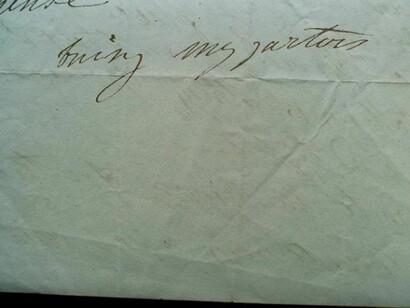 bring my gartois